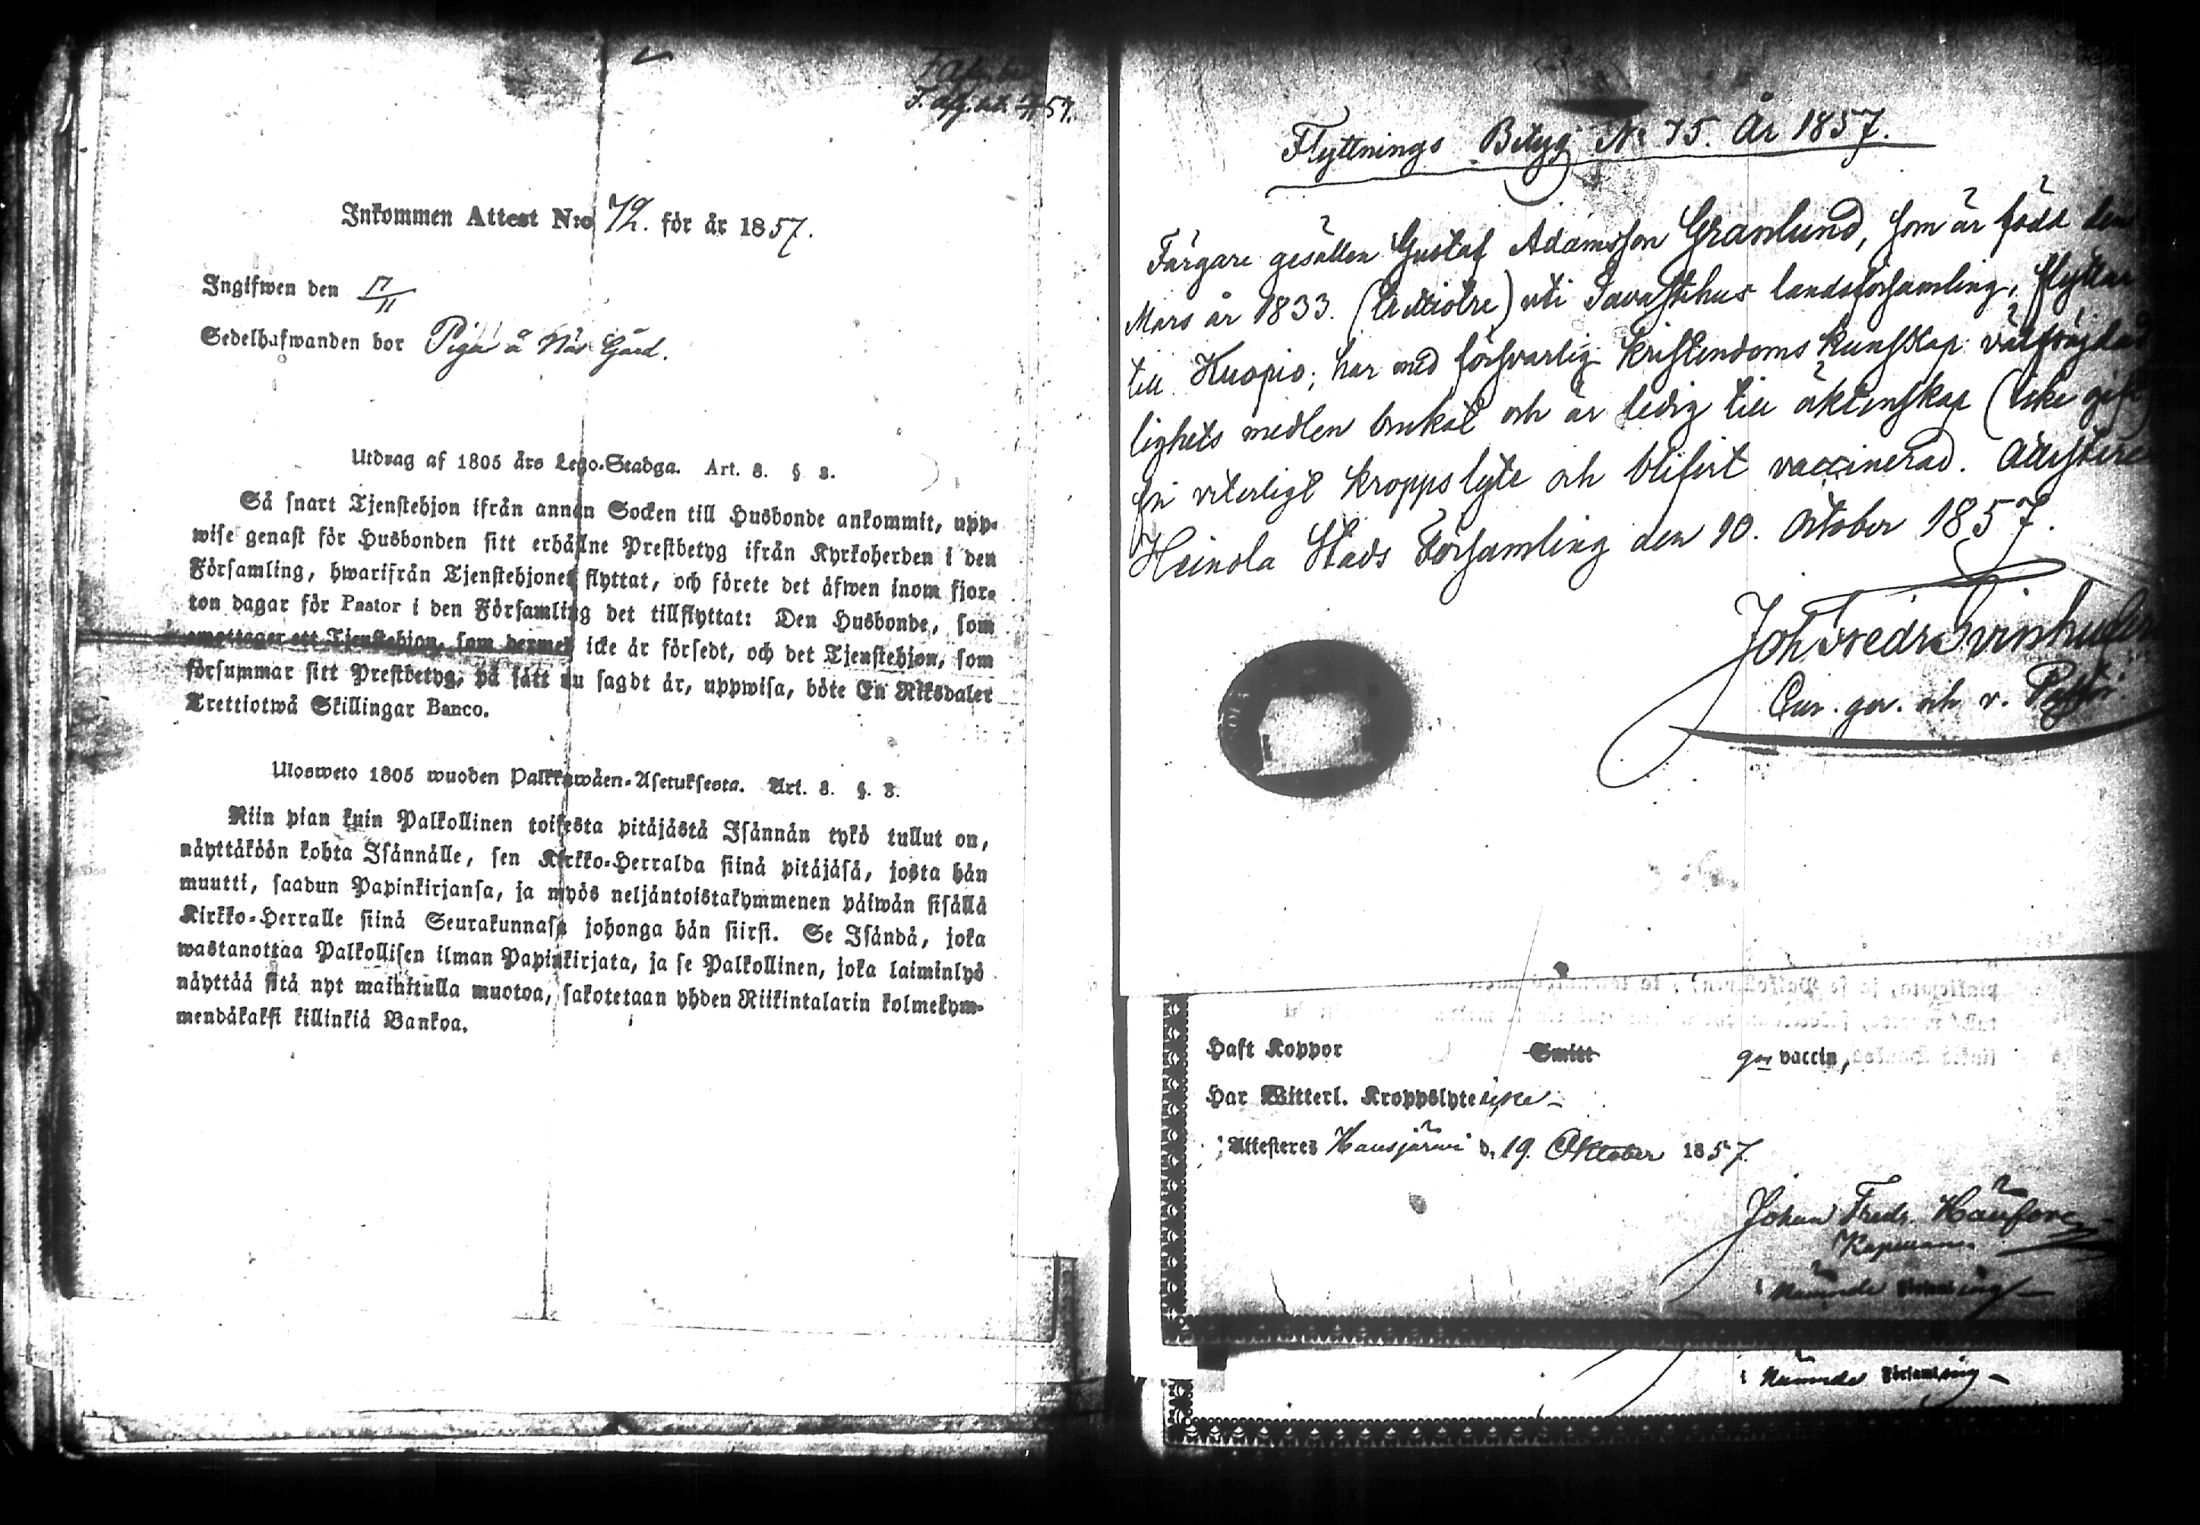 57.
Inkommen Attest N:o 72. för år 1857.
Ingifwen den 17/11
Sedelhafwanden bor Piga å Näs Gård.
Utdrag af 1805 års Lego-Stadga. Art. 8. § 8.
Så snart Tjenstehjon ifrån annan Socken till Husbonde ankommit, upp-
wise genast för Husbonden sitt erhållne Prestbetyg ifrån Kyrkoherden i den
Församling, hwarifrån Tjenstehjonet flyttat, och förete det äfwen inom fjor-
ton dagar för Pastor i den Församling det tillflyttat: Den Husbonde, som
emottager ett Tjenstehjon, som dermed icke är försedt, och det Tjenstehjon, som
försummar sitt Prestbetyg, på sätt nu sagdt är, uppwisa, böte En Riksdaler
Trettiotwå Skillingar Banco.
Ulosweto 1805 wuoden Palkkawäen-Asetuksesta. Art. 8. §. 8.
Niin pian kuin Palkollinen toisesta pitäjästä Isännän tykö tullut on,
näyttäköön kohta Isännälle, sen Kirkko-Herralda siinä pitäjäsä, josta hän
muutti, saadun Papinkirjansa, ja myös neljäntoistakymmenen päiwän sisällä
Kirkko-Herralle siinä Seurakunnasa johonga hän siirsi. Se Isändä, joka
wastanottaa Palkollisen ilman Papinkirjata, ja se Palkollinen, joka laiminlyö
näyttää sitä nyt mainitulla muotoa, sakotetaan yhden Riikintalarin kolmekym-
mendäkaksi killinkiä Bankoa.
Flyttnings Betyg No 75. År 1857.
Färgare gesällen Gustaf Adamsson Granlund, som är född den
Mars år 1833. (trettiotre) uti Tavastehus landsförsamling, flyttar
till Kuopio; har med försvarlig kristendoms kunskap
lighets medlen brukat och är ledig till äktenskap (icke gift)
viterligt kroppslyte och blifvit vaccinerad. Attesteres
Heinola Stads Församling den 10. October 1857.
Joh. Fredr. Svinhufvud
och v. Pastor
Haft Koppor Smitt gm vaccin,
Har Witterl. Kroppslyte icke –
Attesteres Hausjärwi d. 19. Oktober 1857.
Johan Fredr.
Kapellan.
i Nämnde Församling –
i Nämnde Församling –